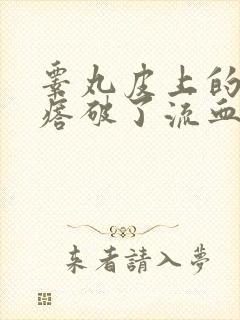 睾丸皮上的
痞破了流血
来者請入夢